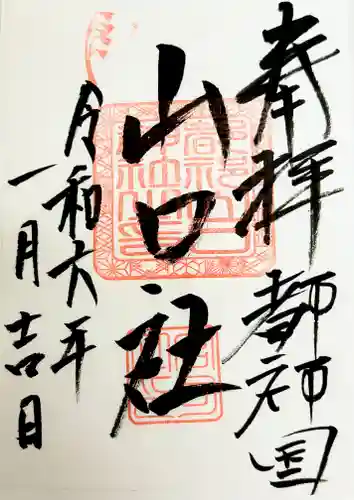 奉拝 都祁国
山口社
令和六年
一月吉日